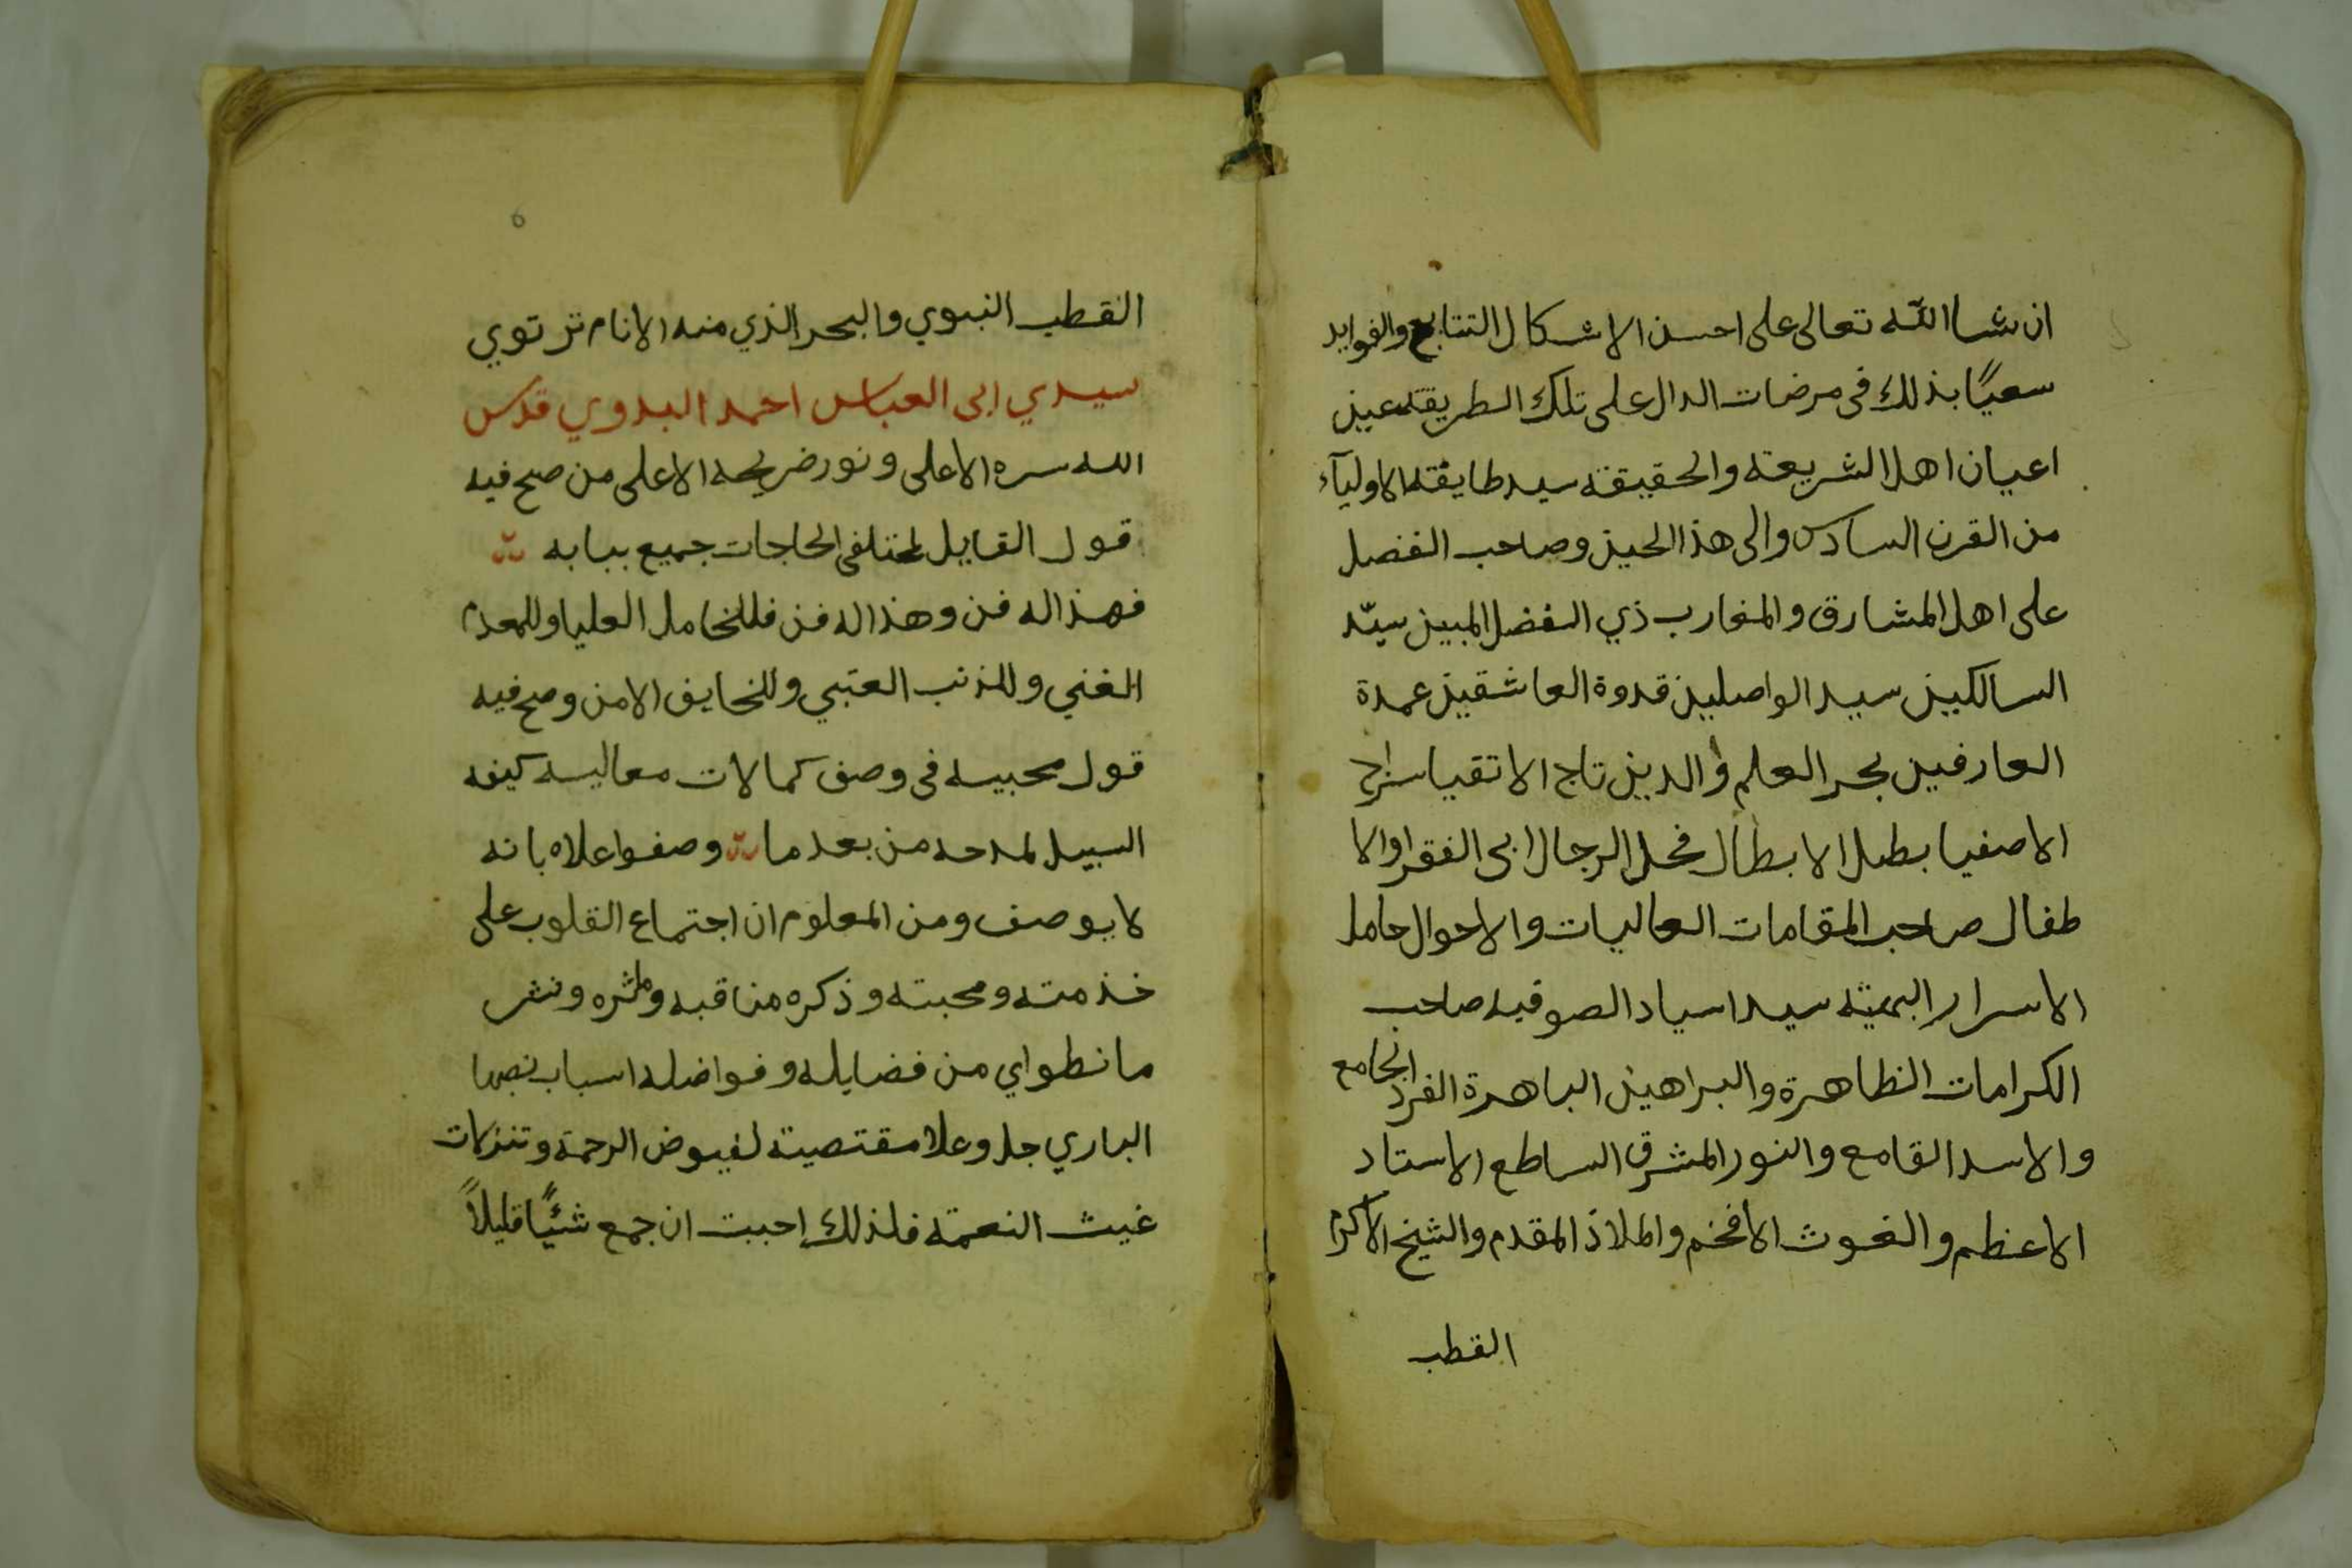 ان شا الله تعالى على احسن الاشكال التتابع والفوايد
سعيًا بذلك فى مرضات الدال على تلك الطريقة عين
اعيان اهل الشريعة والحقيقة سيد طايفة الاوليآء
من القرن السادس والى هذا الحين وصاحب الفضل
على اهل المشارق والمغارب ذي الفضل المبين سيّد
السالكين سيد الواصلين قدوة العاشقين عمدة
العارفين بحر العلم والدين تاج الاتقيا سراج
الاصفيا بطل الابطال فحل الرجال ابى الفقرا والا
طفال صاحب المقامات العاليات والاحوال حامل
الاسرار البهية سيد اسياد الصوفيه صاحب
الكرامات الظاهرة والبراهين الباهرة الفرد الجامع
والاسد القامع والنور المشرق الساطع الاستاد
الاعظم والغوث الافخم والملاذ المقدم والشيخ الاكرم
القطب
6
القطب النبوي والبحر الذي منه الانام ترتوي
سيدي ابى العباس احمد البدوي قدس
الله سره الاعلى ونور ضريحه الاعلى من صح فيه
قول القايل لمختلفى الحاجات جميع ببابه
فهذا له فن وهذا له فن فللخامل العليا وللمعدم
الغني وللمذنب العتبي وللخايف الامن وصح فيه
قول محبيه فى وصف كمالات معاليه كيفه
السبيل لمدحه من بعد ما وصفوا علاه بانه
لا يوصف ومن المعلوم ان اجتماع القلوب على
خذمته ومحبته وذكره مناقبه وماثره ونشر
ما نطواي من فضايله وفواضله اسباب نصبها
الباري جل وعلا مقتصية لفيوض الرحمة وتنزلات
غيث النعمة فلذلك احببت ان جمع شئيًا قليلاً